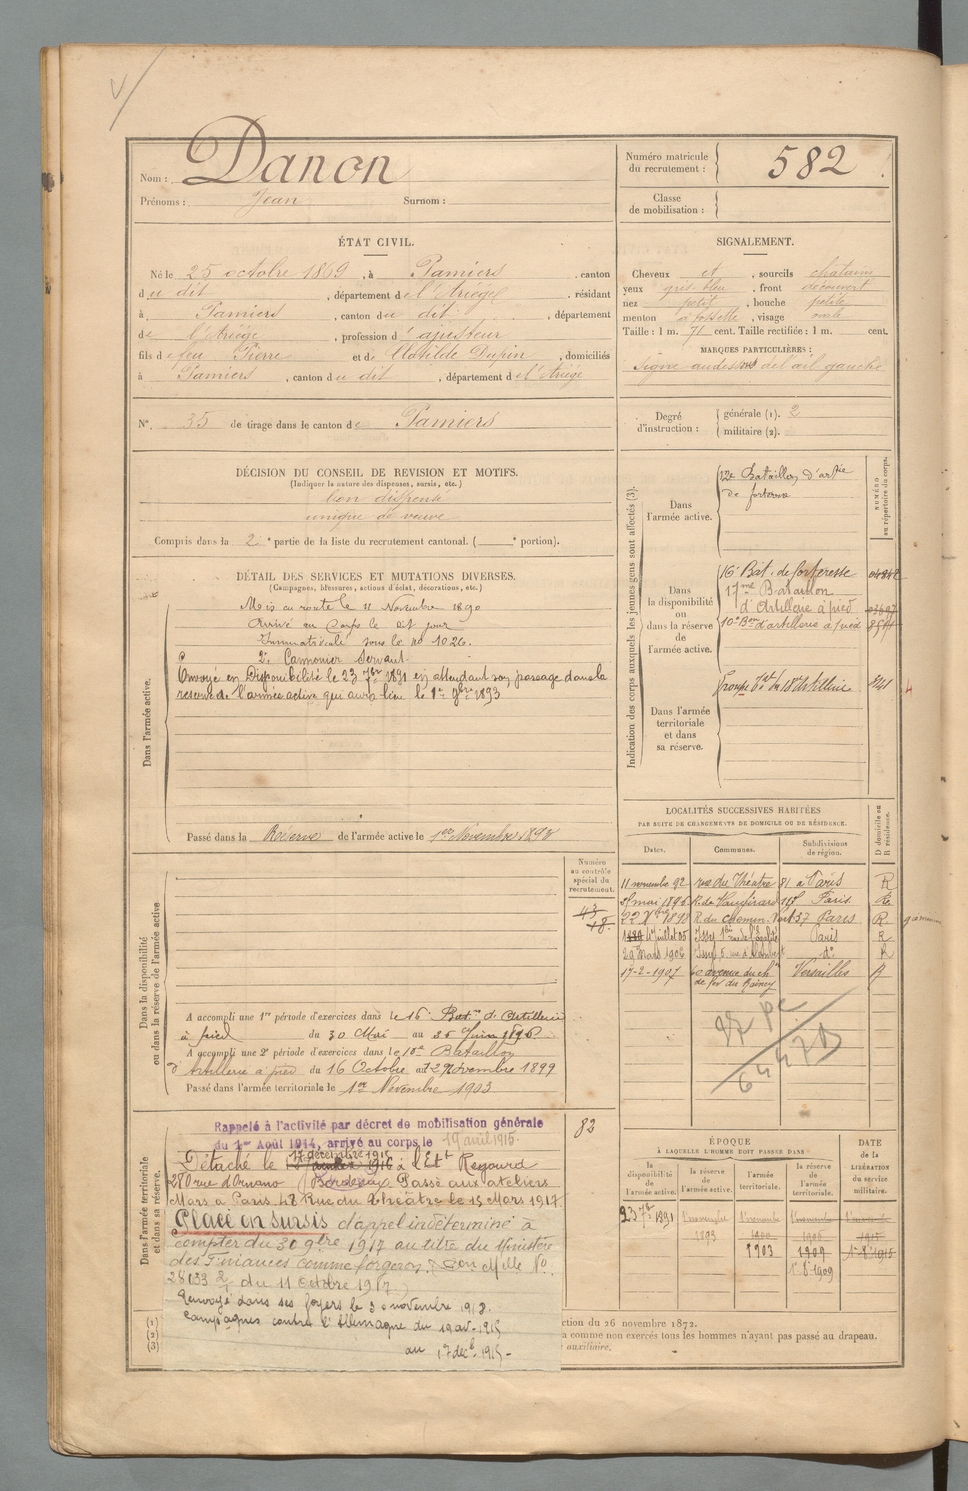 Nom : Danon
Prénoms : Jean Surnom :
Numéro matricule du recrutement : 582
Classe de mobilisation :
ÉTAT CIVIL.
Né le 25 octobre 1869, à Pamiers, canton
du dit, département de l'Ariège, résidant
à Pamiers, canton du dit, département
de l'Ariège, profession d'ajusteur
fils de feu Pierre et de Clotilde Dupin, domiciliés
à Pamiers, canton du dit, département de l'Ariège
SIGNALEMENT.
Cheveux et, sourcils chatains
yeux gris-bleu, front découvert
nez petit, bouche petite
menton à fossette, visage ovale
Taille : 1 m. 71 cent. Taille rectifiée : 1 m. cent.
MARQUES PARTICULIÈRES :
Signe audessus de l'œil gauche
N° 35 de tirage dans le canton de Pamiers
Degré d'instruction : générale (1). 2
militaire (2).
DÉCISION DU CONSEIL DE REVISION ET MOTIFS.
(Indiquer la nature des dispenses, sursis, etc.)
bon dispensé
unique de veuve
Compris dans la 2e partie de la liste du recrutement cantonal. ( e portion).
DÉTAIL DES SERVICES ET MUTATIONS DIVERSES.
(Campagnes, blessures, actions d'éclat, décorations, etc.)
Dans l'armée active.
Mis en route le 11 Novembre 1890
Arrivé au Corps le dit jour
Immatriculé sous le no 1026.
2e Cannonier Servant.
Envoyé en Disponibilité le 23 7bre 1891 en attendant son passage dans la
réserve de l'armée active qui aura lieu le 1er 9bre 1893
Passé dans la Réserve de l'armée active le 1er Novembre 1893
Indication des corps auxquels les jeunes gens sont affectés (3).
NUMÉRO au répertoire du corps.
Dans l'armée active.
12e Bataillon d'artie
de forteresse
Dans la disponibilité ou dans la réserve de l'armée active.
16e Bat. de forteresse
17me Bataillon
d'Artillerie à pied
10e Bon d'artillerie à pied
Dans l'armée territoriale et dans sa réserve.
Groupe du 18e d'Artillerie 2141
LOCALITÉS SUCCESSIVES HABITÉES
PAR SUITE DE CHANGEMENTS DE DOMICILE OU DE RÉSIDENCE.
Dates. Communes. Subdivisions de région. D domicile ou R résidence.
11 novembre 92 rue du Théâtre 81 à Paris R
mai 1896 R. de Vaugirard Paris R
1898 R. du Chemin Vert 37 Paris R
4 juillet 05 Issy Paris R
29 Mars 1906 Issy do R
17-2-1907 60 avenue du ch. Versailles R
de fer du Raincy
Dans la disponibilité ou dans la réserve de l'armée active
Numéro au contrôle spécial du recrutement.
43
18.
A accompli une 1re période d'exercices dans le 16e Baton d'Artillerie
à pied du 30 Mai au 26 Juin 1896.
A accompli une 2e période d'exercices dans le 10e Bataillon
d'Artillerie à pied du 16 Octobre au 12 Novembre 1899
Passé dans l'armée territoriale le 1er Novembre 1903
64470
Dans l'armée territoriale et dans sa réserve.
82
Rappelé à l'activité par décret de mobilisation générale
du 1er Août 1914, arrivé au corps le 19 avril 1915.
17 décembre 1915
Détaché le à l'Ett Regourd
280 rue d'Ornano (Bordeaux Passé aux ateliers
Mars à Paris 48 Rue du Théâtre le 15 Mars 1917.
Placé en sursis d'appel indéterminé à
compter du 30 9bre 1917 au titre du Ministère
des Finances comme forgeron. Don Melle No
28133 du 11 Octobre 1917)
Renvoyé dans ses foyers le 30 novembre 1918.
Campagnes contre l'Allemagne du 19 av. 1915
au 17 déc. 1915 -
ÉPOQUE
À LAQUELLE L'HOMME DOIT PASSER DANS
la disponibilité de l'armée active. la réserve de l'armée active. l'armée territoriale. la réserve de l'armée territoriale.
DATE de la LIBÉRATION du service militaire.
23 7bre 1891 1er novembre 1893 1er novembre 1900 1er novembre 1906 1915
1903 1909
1er 8 1909
(1)
(2)
(3)
ction du 26 novembre 1872.
a comme non exercés tous les hommes n'ayant pas passé au drapeau.
auxiliaire.